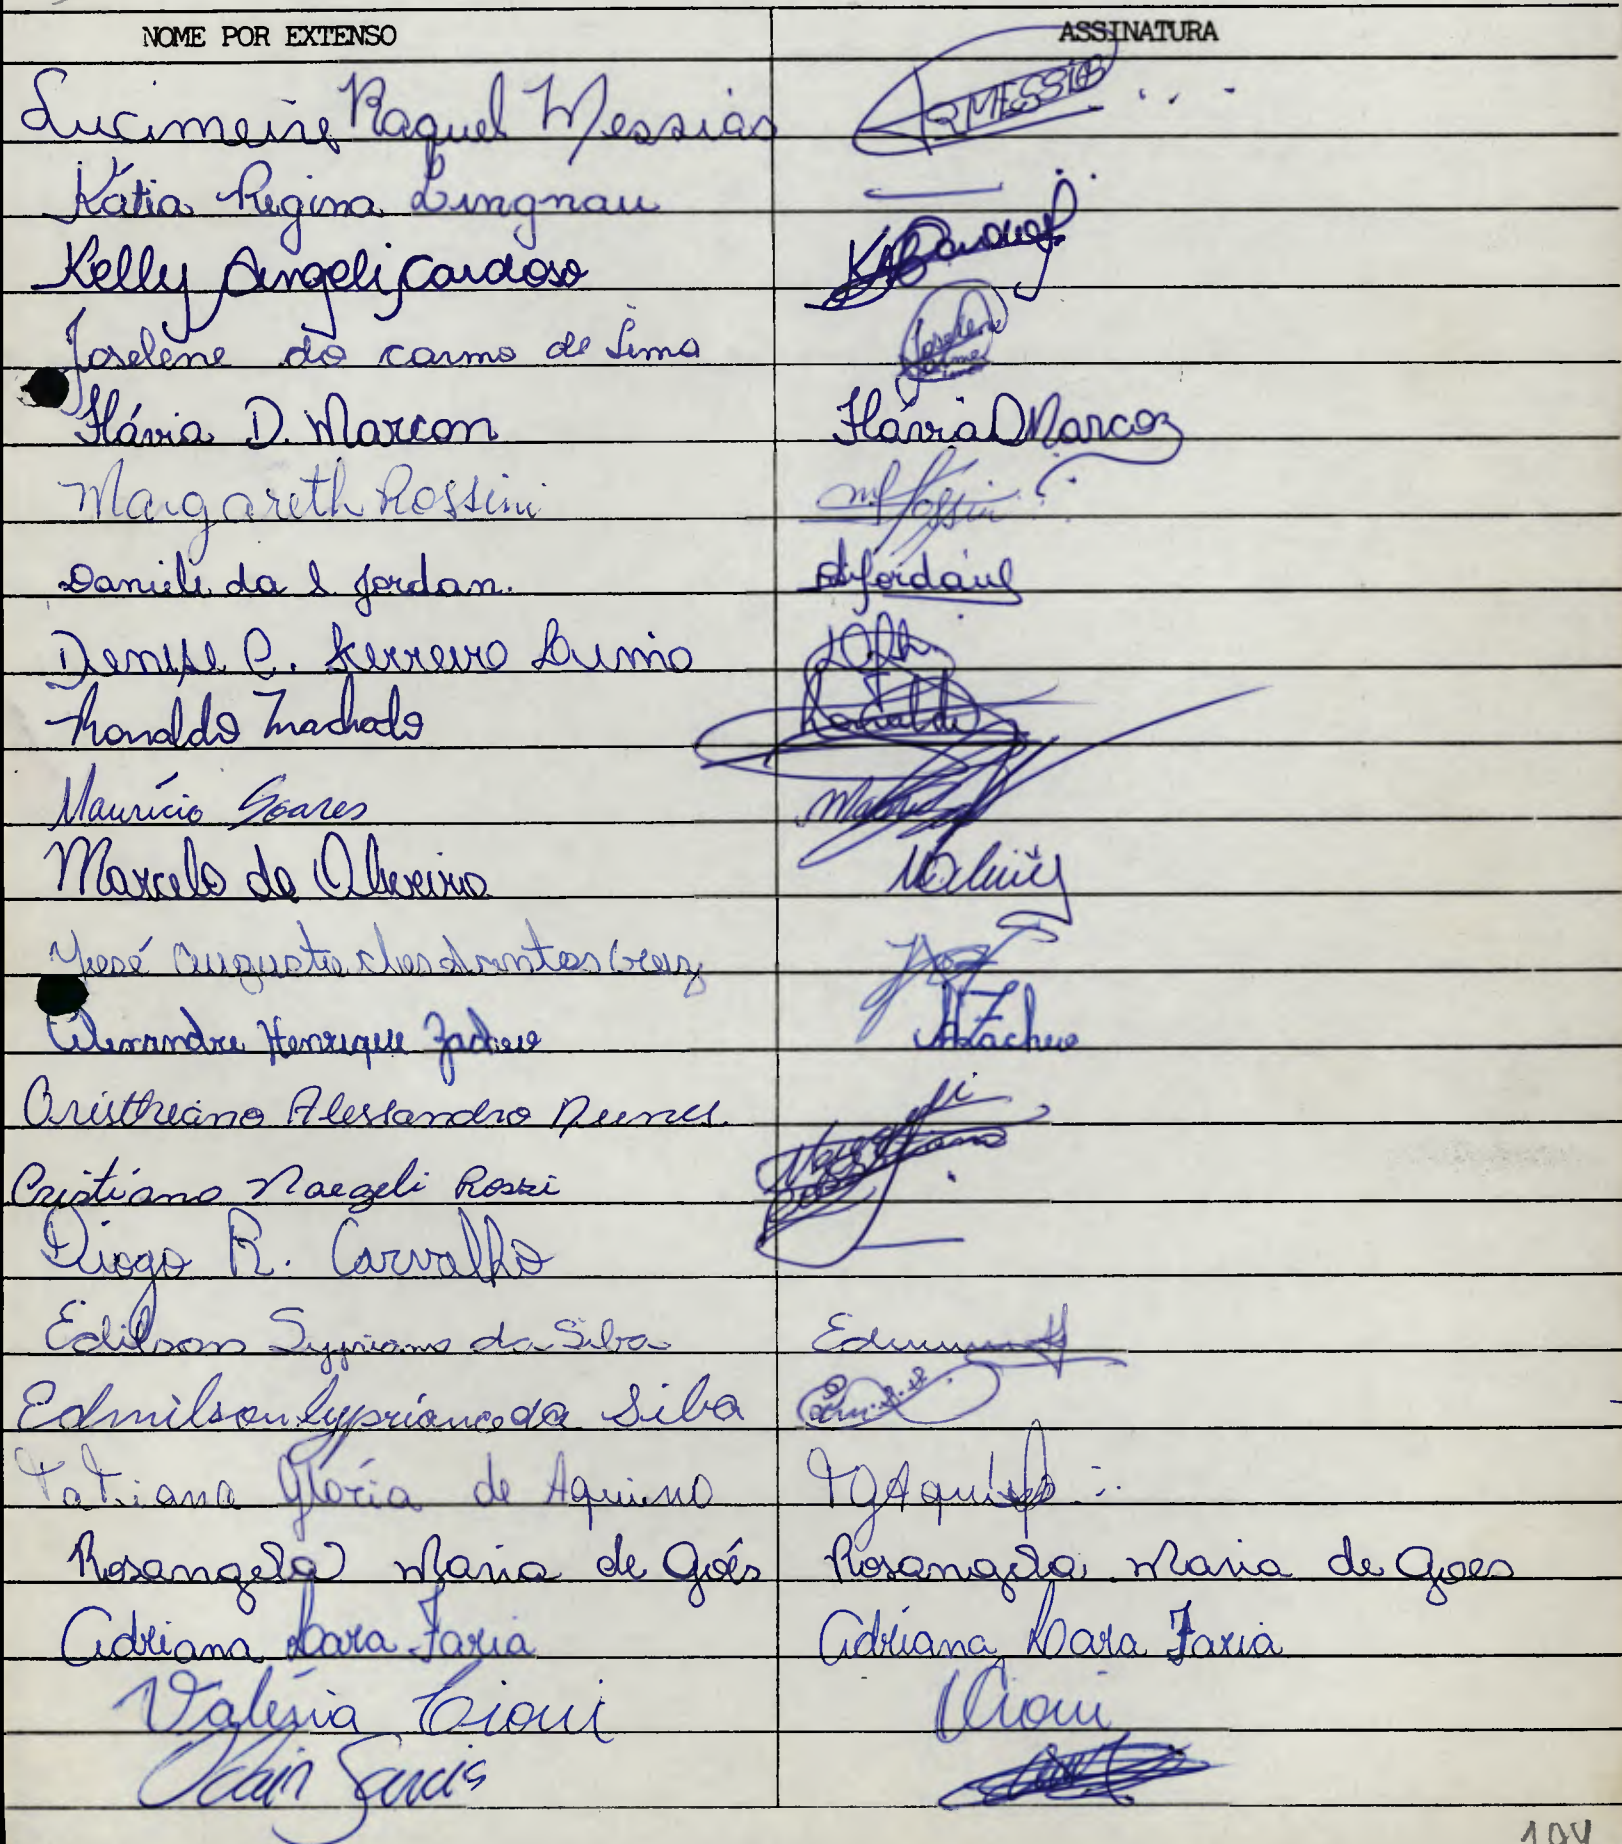 NOME POR EXTENSO ASSINATURA
Lucimeire Raquel Messias RMESSIAS
Kátia Regina Lingnau
Kelly Angeli Cardoso
Joselene do carmo de Lima Joselene
Flávia D. Marcon Flávia D Marcon
Margareth Rossini
Daniele da S Jordan.
Denise C. Ferreira
Ronaldo Machado Ronaldo
Maurício Soares
Marcelo de Oliveira
José Augusto dos Santos Cruz
Alexandre Henrique Zacheo AHZacheo
Cristhiano Alessandro Nunes.
Cristiano Naegeli Rossi
Diogo R. Carvalho
Edilson Sypriano da Silva
Edmilson Cypriano da Silva
Tatiana Glória de Aquino TGAquino
Rosangela Maria de Goés Rosangela Maria de Goes
Adriana Lara Faria Adriana Lara Faria
Valéria Cioni VCioni
Odair Garcia
104